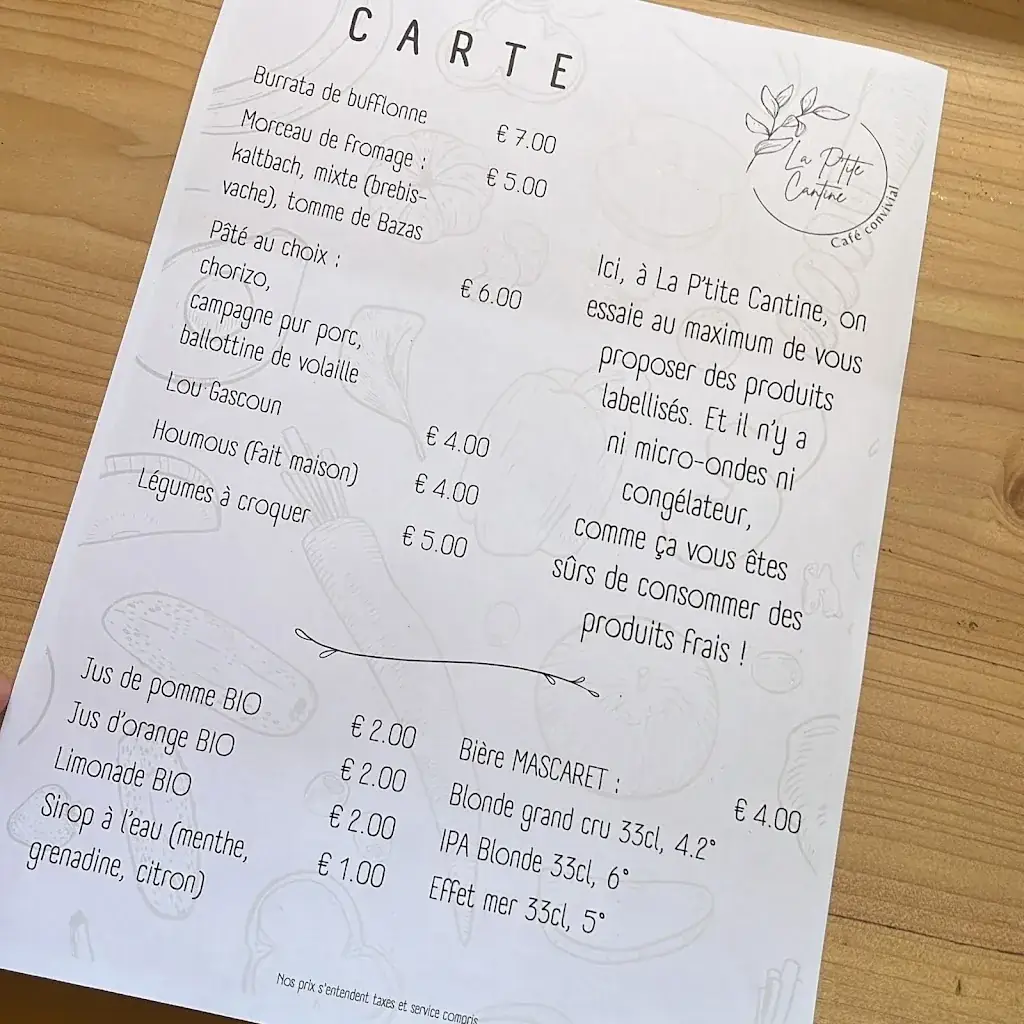 CARTE
Burrata de bufflonne € 7.00
Morceau de fromage : € 5.00
kaltbach, mixte (brebis-
vache), tomme de Bazas
Pâté au choix : € 6.00
chorizo,
campagne pur porc,
ballottine de volaille
Lou Gascoun € 4.00
Houmous (fait maison) € 4.00
Légumes à croquer € 5.00
La P'tite
Cantine
Café convivial
Ici, à La P'tite Cantine, on
essaie au maximum de vous
proposer des produits
labellisés. Et il n'y a
ni micro-ondes ni
congélateur,
comme ça vous êtes
sûrs de consommer des
produits frais !
Jus de pomme BIO € 2.00
Jus d'orange BIO € 2.00
Limonade BIO € 2.00
Sirop à l'eau (menthe, € 1.00
grenadine, citron)
Bière MASCARET : € 4.00
Blonde grand cru 33cl, 4.2°
IPA Blonde 33cl, 6°
Effet mer 33cl, 5°
Nos prix s'entendent taxes et service compris